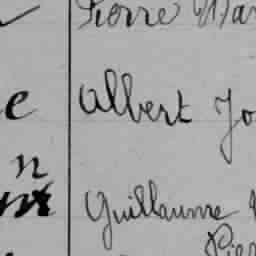 Pierre Mar
e Albert Jo
n
Guillaume
Pier